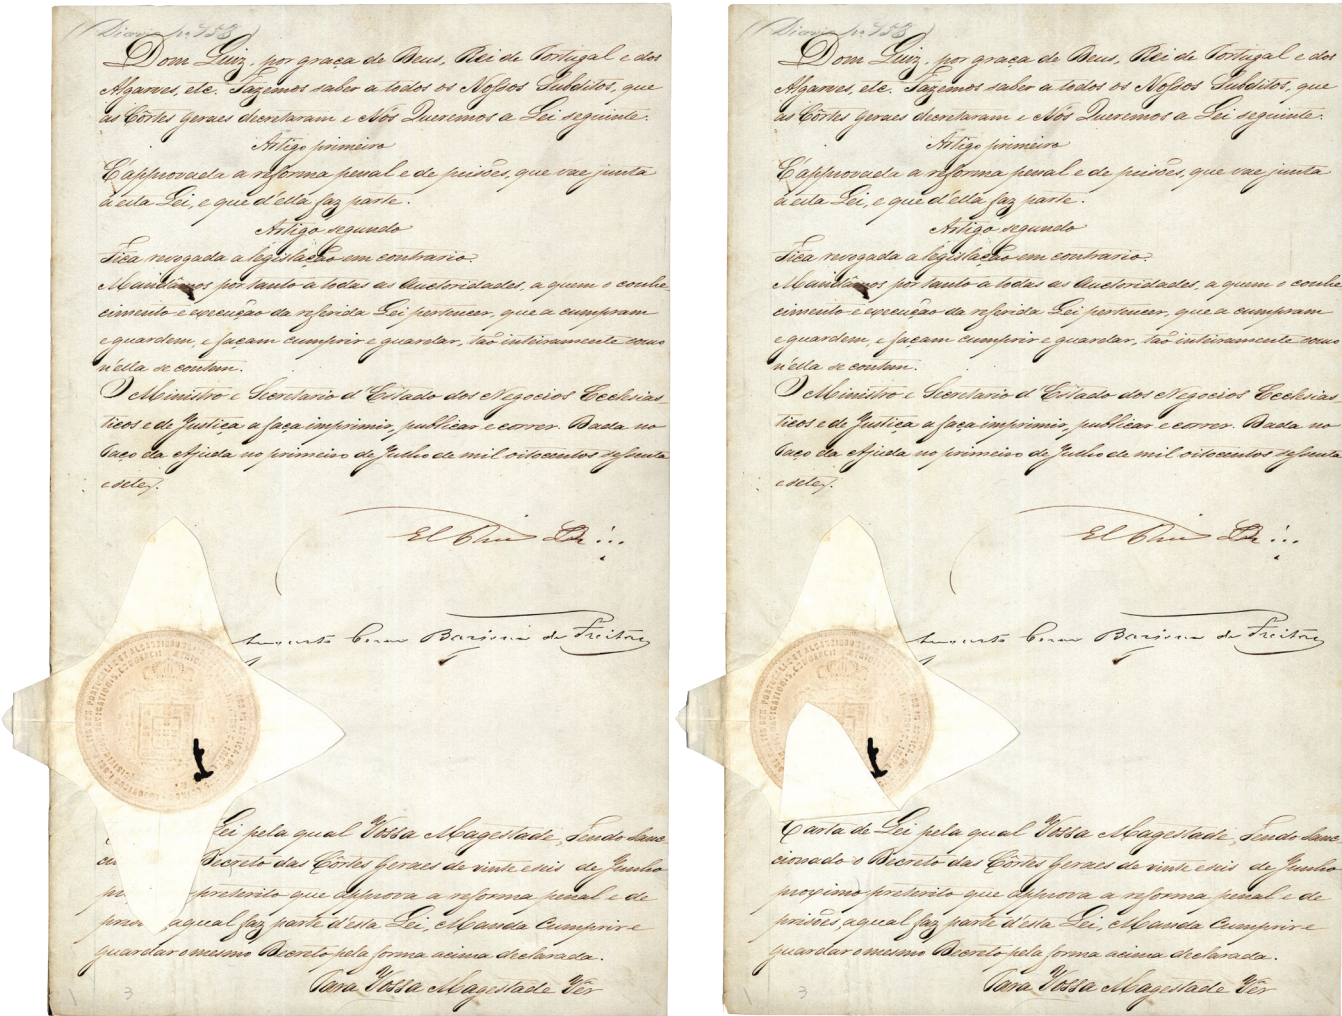 (Diario nº 153)
Dom Luiz, por graça de Deus, Rei de Portugal e dos
Algarves, etc. Fazemos saber a todos os Nossos Subditos, que
as Côrtes Geraes decretaram e Nós Queremos a Lei seguinte.
Artigo primeiro
É approvada a reforma penal e de prisões, que vae junta
a esta Lei, e que d'ella faz parte.
Artigo segundo
Fica revogada a legislação em contrario.
Mandâmos por tanto a todas as Auctoridades, a quem o conhe-
cimento e execução da referida Lei pertencer, que a cumpram
e guardem, e façam cumprir e guardar, tão inteiramente como
n'ella se contem.
O Ministro e Secretario d'Estado dos Negocios Ecclesias-
ticos e de Justiça a faça imprimir, publicar e correr. Dada no
Paço da Ajuda no primeiro de Julho de mil oitocentos sessenta
e sete.
El Rei
Augusto Cesar Barjona de Freitas
Lei pela qual Vossa Magestade, Tendo Sanc-
Decreto das Côrtes Geraes de vinte e seis de Junho
preterito que approva a reforma penal e de
aqual faz parte d'esta Lei, Manda Cumprir e
guardar o mesmo Decreto pela forma acima declarada.
Para Vossa Magestade Vêr
3
(Diario nº 153)
Dom Luiz, por graça de Deus, Rei de Portugal e dos
Algarves, etc. Fazemos saber a todos os Nossos Subditos, que
as Côrtes Geraes decretaram e Nós Queremos a Lei seguinte.
Artigo primeiro
É approvada a reforma penal e de prisões, que vae junta
a esta Lei, e que d'ella faz parte.
Artigo segundo
Fica revogada a legislação em contrario.
Mandâmos por tanto a todas as Auctoridades, a quem o conhe-
cimento e execução da referida Lei pertencer, que a cumpram
e guardem, e façam cumprir e guardar, tão inteiramente como
n'ella se contem.
O Ministro e Secretario d'Estado dos Negocios Ecclesias-
ticos e de Justiça a faça imprimir, publicar e correr. Dada no
Paço da Ajuda no primeiro de Julho de mil oitocentos sessenta
e sete.
El Rei
Augusto Cesar Barjona de Freitas
Carta de Lei pela qual Vossa Magestade, Tendo Sanc-
cionado o Decreto das Côrtes Geraes de vinte e seis de Junho
proximo preterito que approva a reforma penal e de
prisões, aqual faz parte d'esta Lei, Manda Cumprir e
guardar o mesmo Decreto pela forma acima declarada.
Para Vossa Magestade Vêr
3